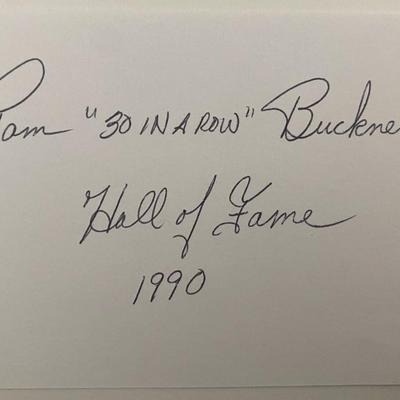 Pam "30 IN A ROW" Buckne
Hall of Fame
1990